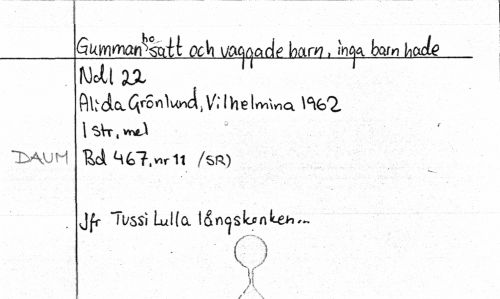 Gumman ho satt och vaggade barn, inga barn hade
Ndl 22
Alida Grönlund, Vilhelmina 1962
1 str, mel
DAUM Bd 467, nr 11 (SR)
Jfr Tussi Lulla långskonken...